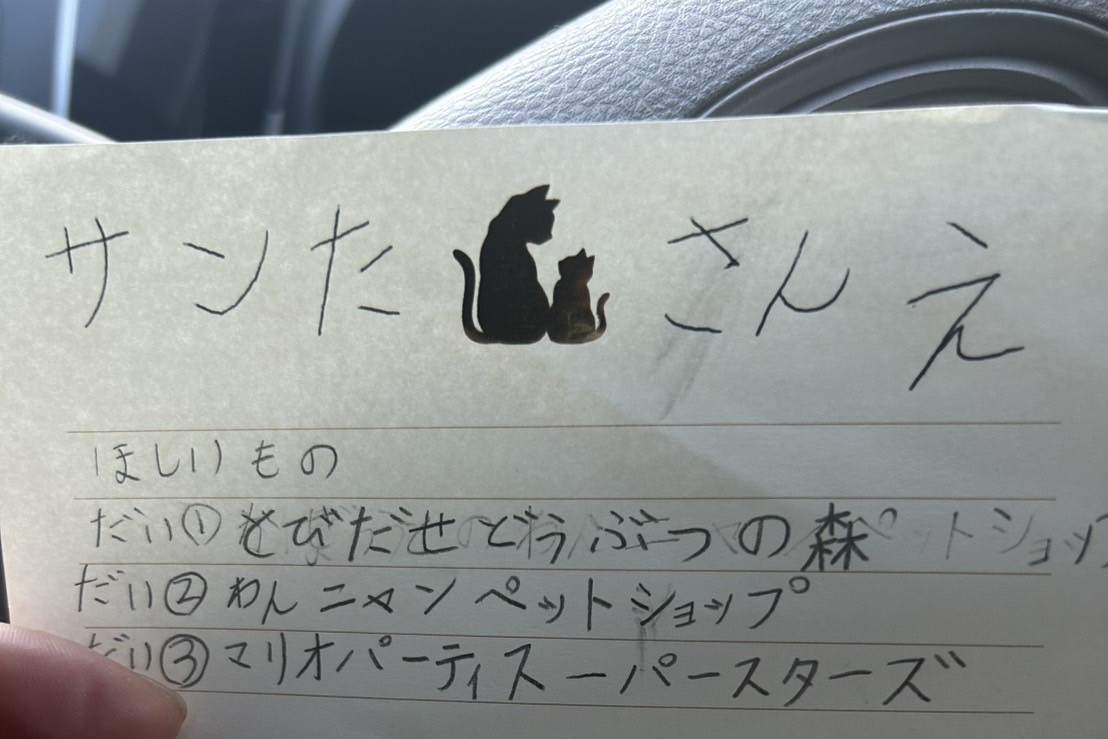 サンた さんえ
ほしいもの
だい① とびだせどうぶつの森
だい② わんニャンペットショップ
だい③ マリオパーティスーパースターズ